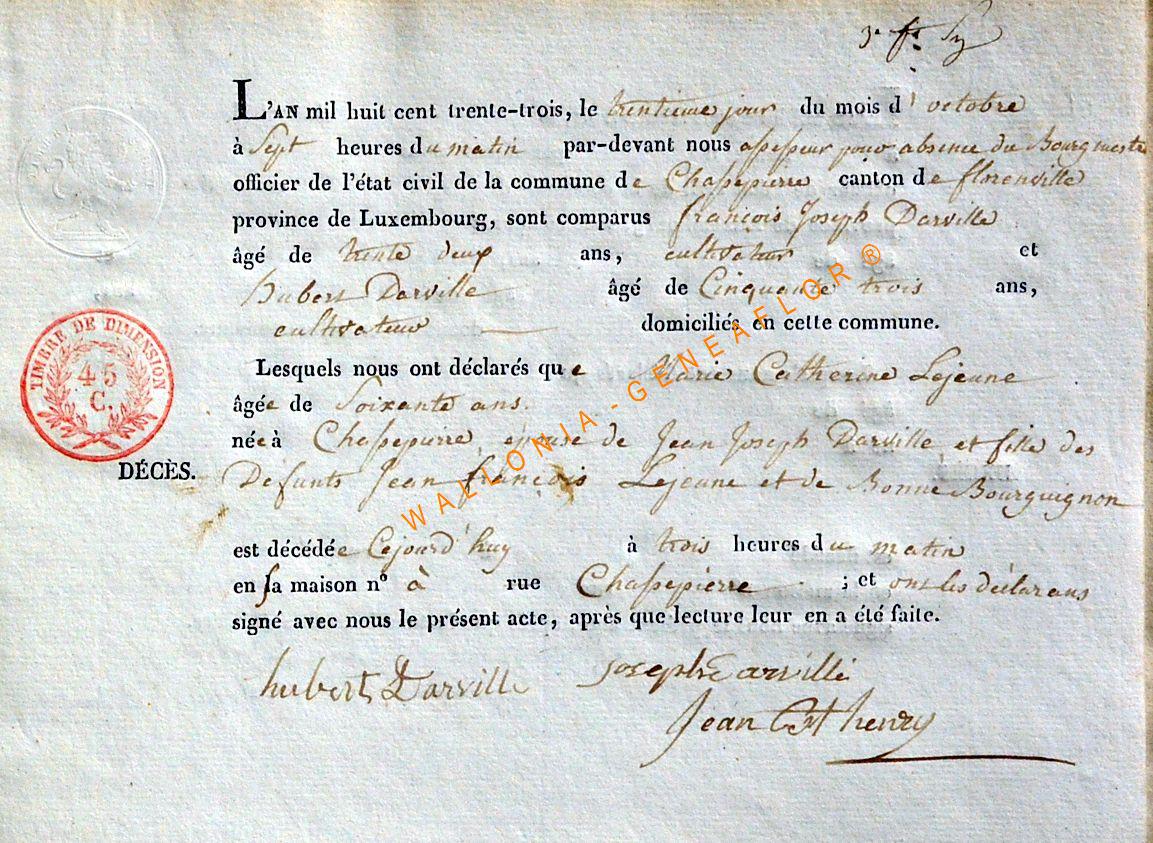 3e
L'AN mil huit cent trente-trois, le trentieme jour du mois d'octobre
à Sept heures du matin par-devant nous assesseur pour absence du Bourgmestre
officier de l'état civil de la commune de Chassepierre canton de florenville
province de Luxembourg, sont comparus françois Joseph Darville
âgé de trente deux ans, cultivateur et
hubert Darville âgé de Cinquante trois ans,
cultivateur domiciliés en cette commune.
Lesquels nous ont déclarés que Marie Catherine Lejeune
âgée de Soixante ans.
née à Chassepierre, épouse de Jean Joseph Darville, et fille des
Defunts Jean françois Lejeune et de Bonne Bourguignon
est décédée Cejourd'huy à trois heures du matin
en sa maison n° à rue Chassepierre ; et ont les déclarans
signé avec nous le présent acte, après que lecture leur en a été faite.
hubert Darville Joseph Darville
Jean henry
DÉCÈS.
TIMBRE DE DIMENSION
45
C.
WALLONIA-GENEAFLOR®